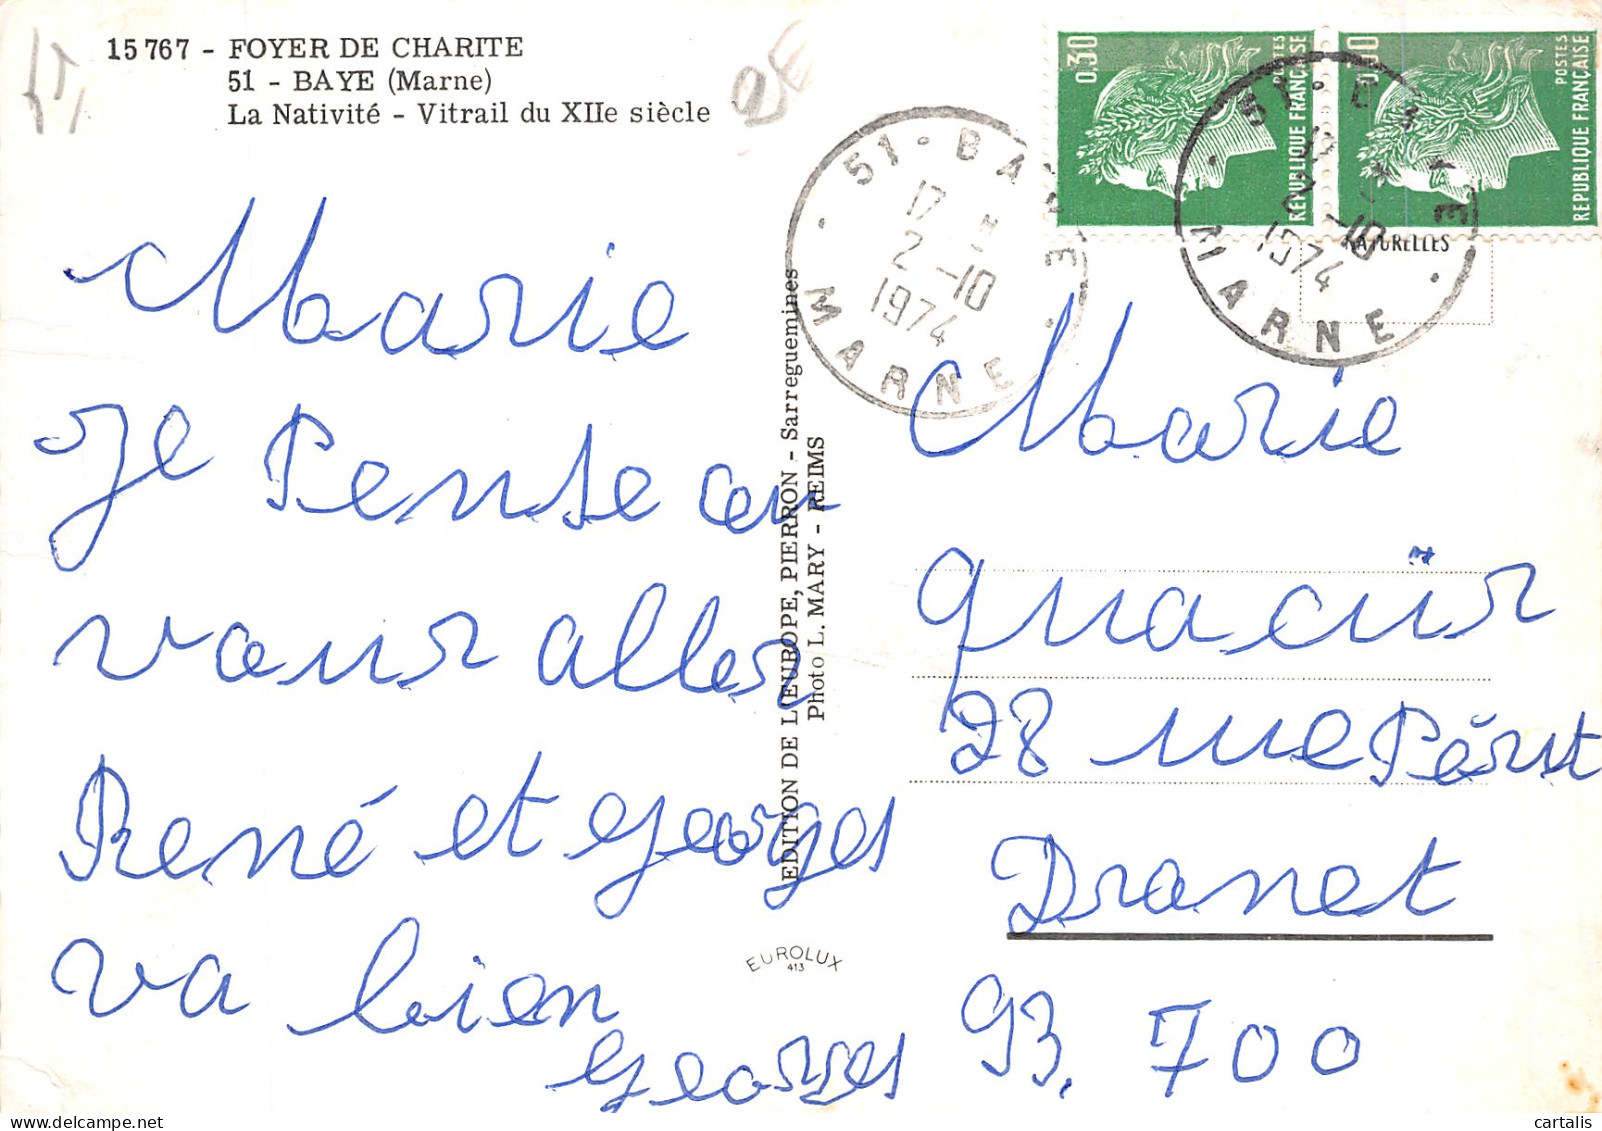 15 767 - FOYER DE CHARITE
51 - BAYE (Marne)
La Nativité - Vitrail du XIIe siècle
2€
Marie
Je Pense
vour aller
René et georges
va bien
georges
EDITION DE L'EUROPE, PIERRON - Sarreguemines
Photo L. MARY - REIMS
EUROLUX
413
0,30
POSTES
REPUBLIQUE FRANÇAISE
0,30
POSTES
REPUBLIQUE FRANÇAISE
51 - BAYE
17 H
2 -10
1974
MARNE
51 - BAYE
17 H
2 -10
1974
MARNE
NATURELLES
Marie
28 rue
Dranet
93. 700
cartalis
www.delcampe.net